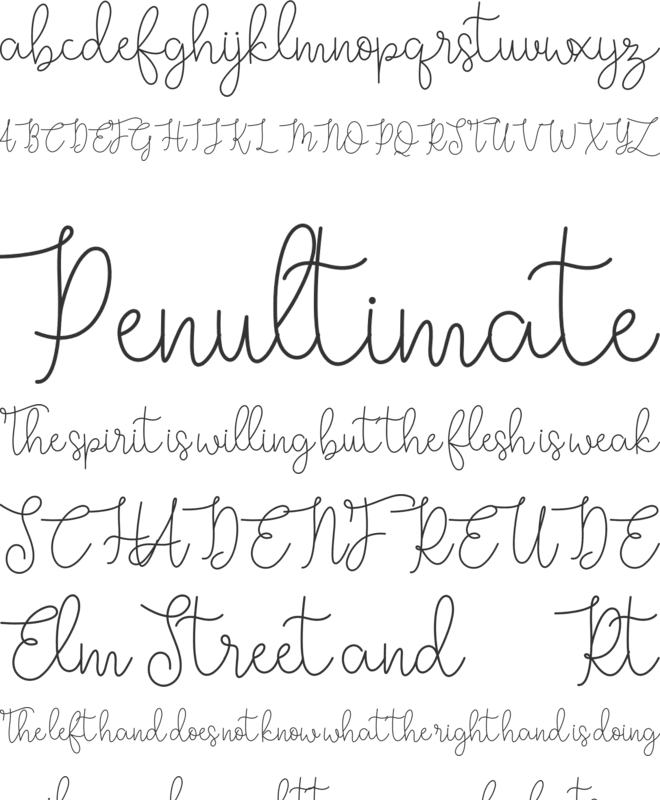 abcdefghijklmnopqrstuvwxyz
ABCDEFGHIJKL MNOPQRSTUVWXYZ
Penultimate
The spirit is willing but the flesh is weak
SCHADENFREUDE
Elm Street and Rt
The left hand does not know what the right hand is doing